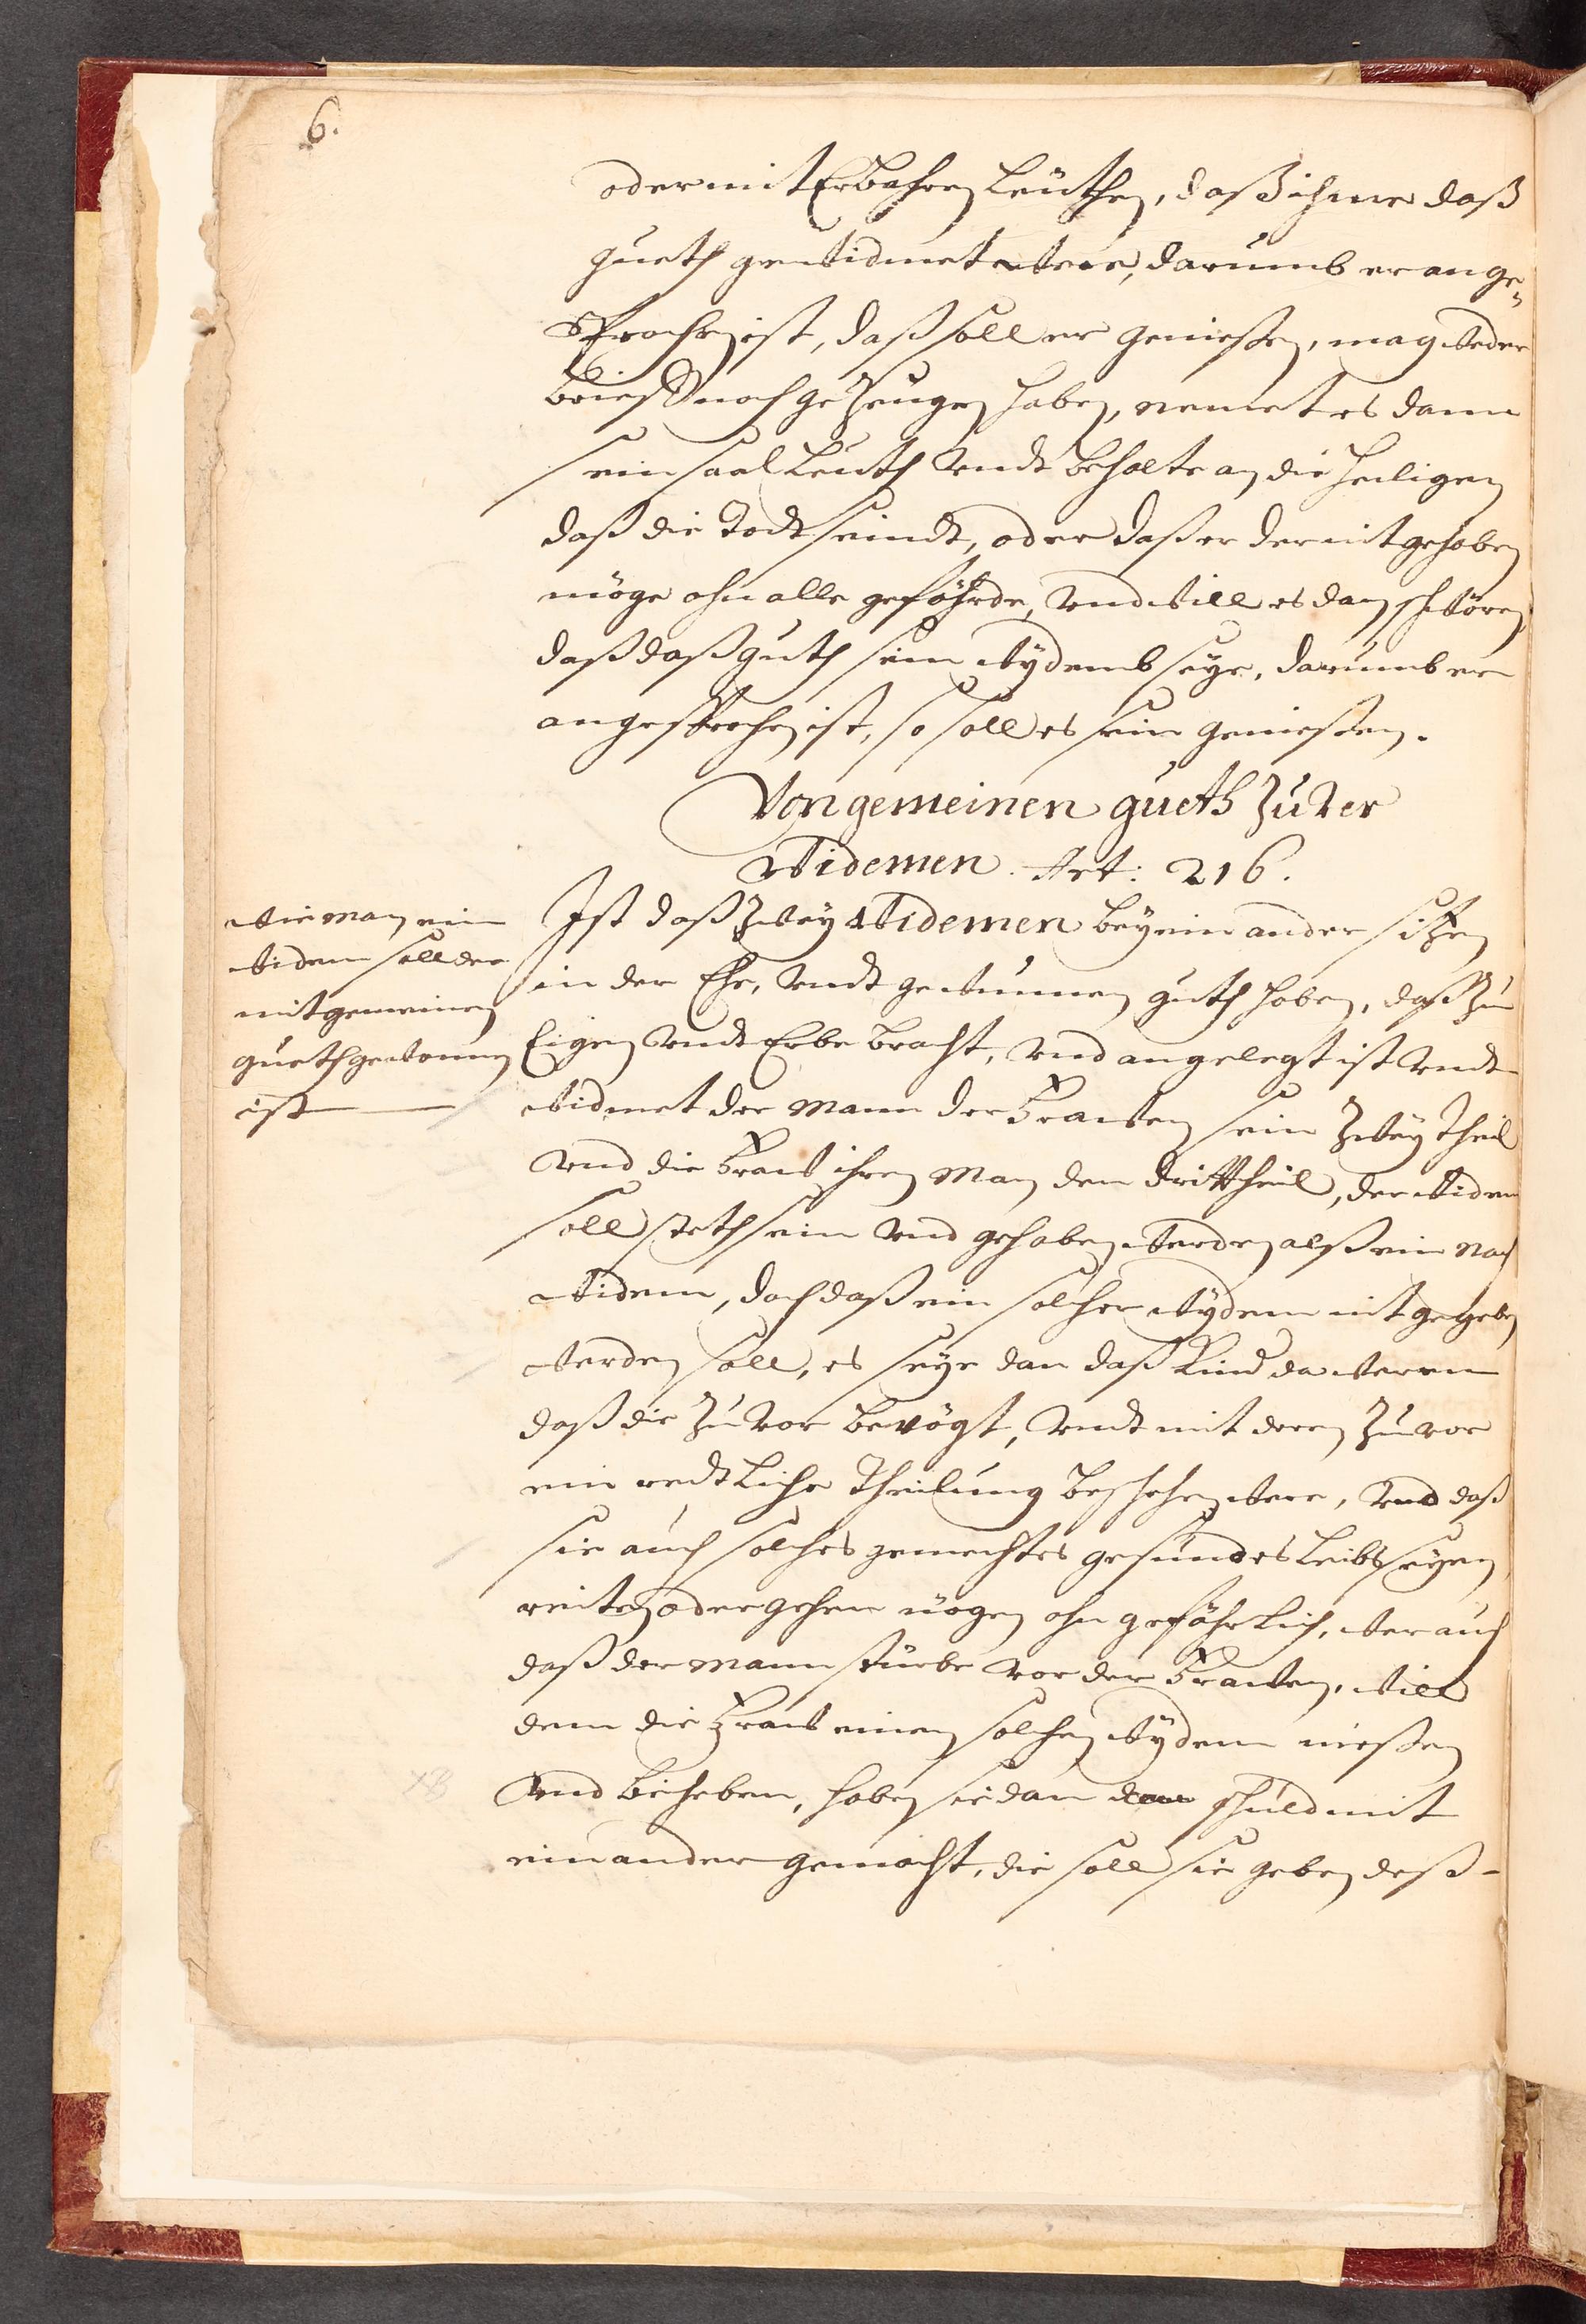 6.
oder mit Erbahren Leüthen, daß ihme daß
gueth gewidmet were, darumb er ange¬
Sprochen ist, daß soll er genießen, mag weder
brieff noch gezeugen haben, nemet es dann
sein saal Leuth vndt behalte an die Heiligen
daß die Todt seindt, oder daß er der nit gehaben
möge ohn alle gefährde, vnd will es dan schwören,
daß daß guth sein wydemb seye, darumb er
angesprochen ist, so soll es sein genießen.
Von gemeinen gueth zu ver
widemen. Art: 216.
wie man ein
widem soll der
mit gemeinen
gueth gewonnen
ist
Ist daß zwey widemen bey ein ander sitzen
in der Ehe, vndt gewunnen guth haben, daß zu
Eigen vndt Erbe bracht, vnd angelegt ist vndt
widmet der Mann der Frawen sein zwey theil
vnd die Fraw ihren Man den dritttheil, der widem
soll steth sein vnd gehaben werden alß ein nach
widem, doch daß ein solcher wydem nit gegeben
werden soll, es seye dan daß Kind da weren
daß die zuvor bevögt, vndt mit deren zuvor
ein redtliche theilung beschehen were, vnd daß
sie auch solches gemechtes gesundes Leibs seyen,
reiten oder gehen mögen ohn gefährlich, wer auch
daß der Mann stürbe vor der Frawen, will
dem die Fraw einen solchen wydem nießen
vnd beheben, haben sie dan schuld mit
einander gemacht, die soll sie geben deß-